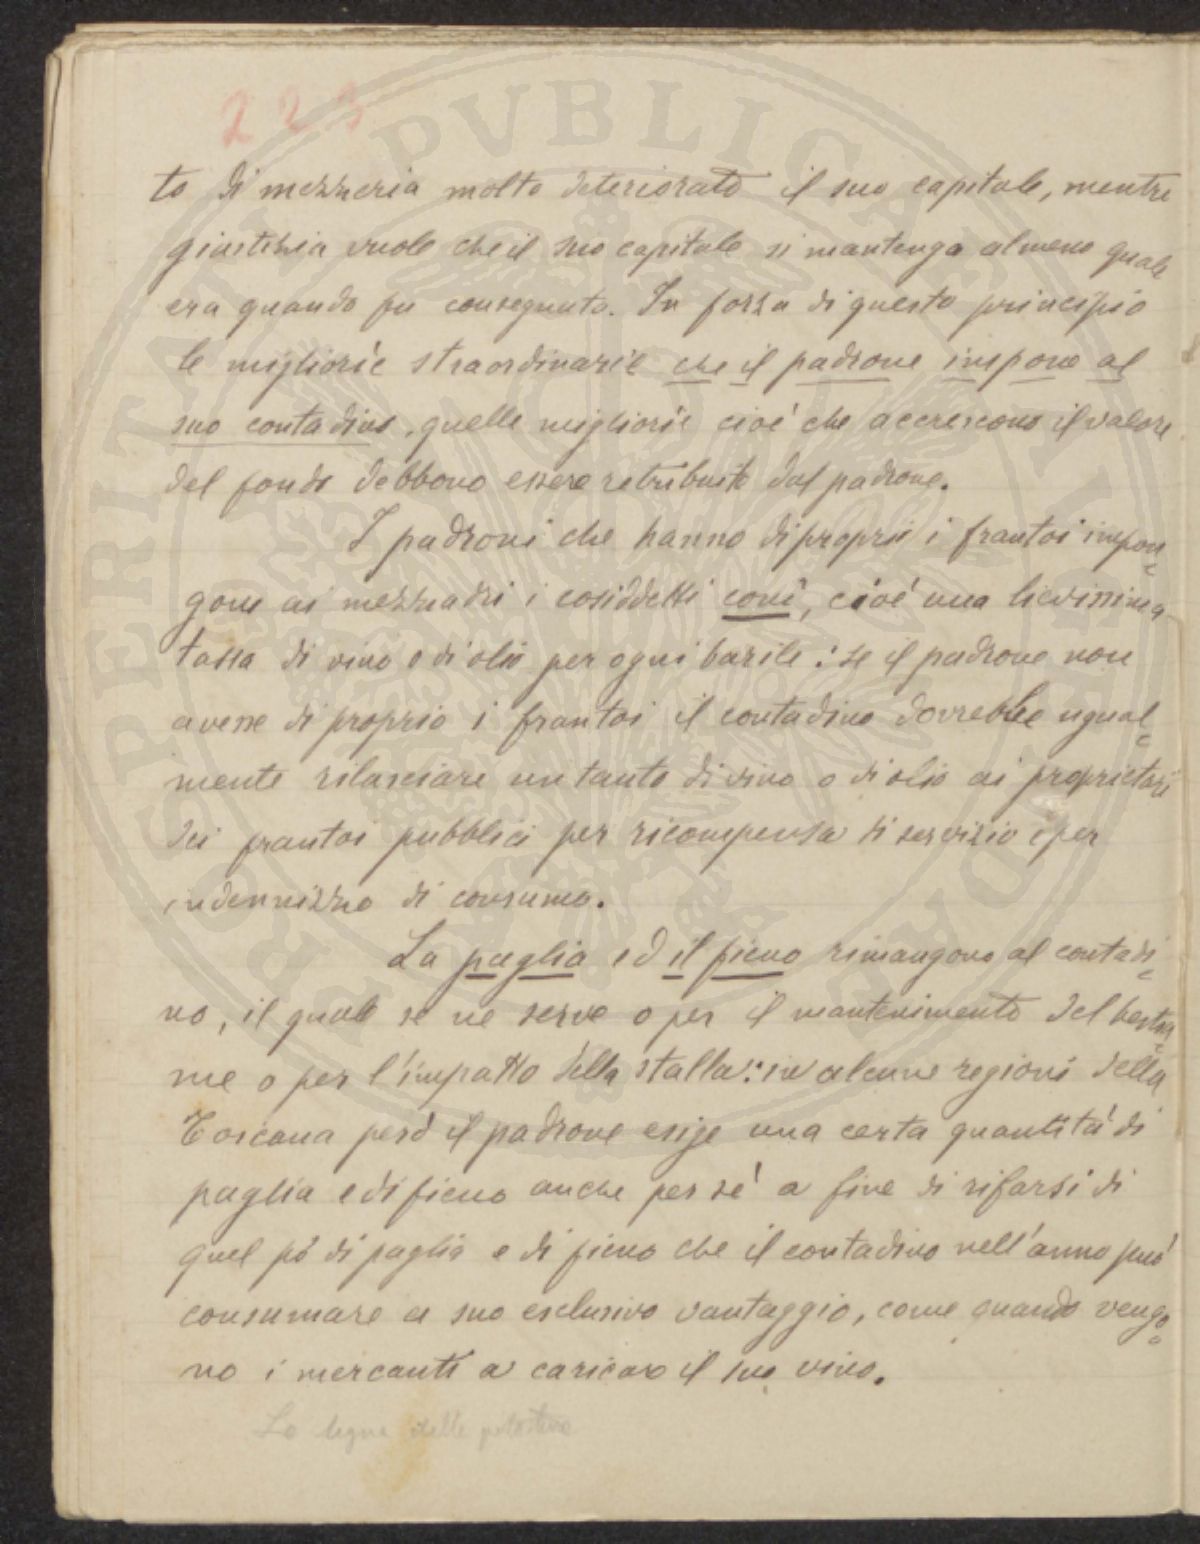 223
to di mezzeria molto deteriorato il suo capitale, mentre
giustizia vuole che il suo capitale si mantenga almeno quale
era quando fu consegnato. In forza di questo principio
le migliorie straordinarie che il padrone impone al
suo contadino, quelle migliorie cioé che accrescono il valore
del fondo debbono essere retribuite dal padrone.
I padroni che hanno di proprio i frantoi impon=
gono ai mezzadri i cosiddetti covi, cioé una lievissima
tassa di vino o di olio per ogni barile: se il padrone non
avesse di proprio i frantoi il contadino dovrebbe ugual=
mente rilasciare un tanto di vino o di olio ai proprietari
dei frantoi pubblici per ricompensa di servizio e per
indennizzo di consumo.
La paglia ed il fieno rimangono al contadi=
no, il quale se ne serve o per il mantenimento del bestia=
me o per l'impatto della stalla: in alcune regioni della
Toscana però il padrone esige una certa quantità di
paglia e di fieno anche per sé a fine di rifarsi di
quel pò di paglia e di fieno che il contadino nell'anno può
consumare a suo esclusivo vantaggio, come quando vengo=
no i mercanti a caricare il suo vino.
La legna delle
PROSPERITATI PVBLICAE